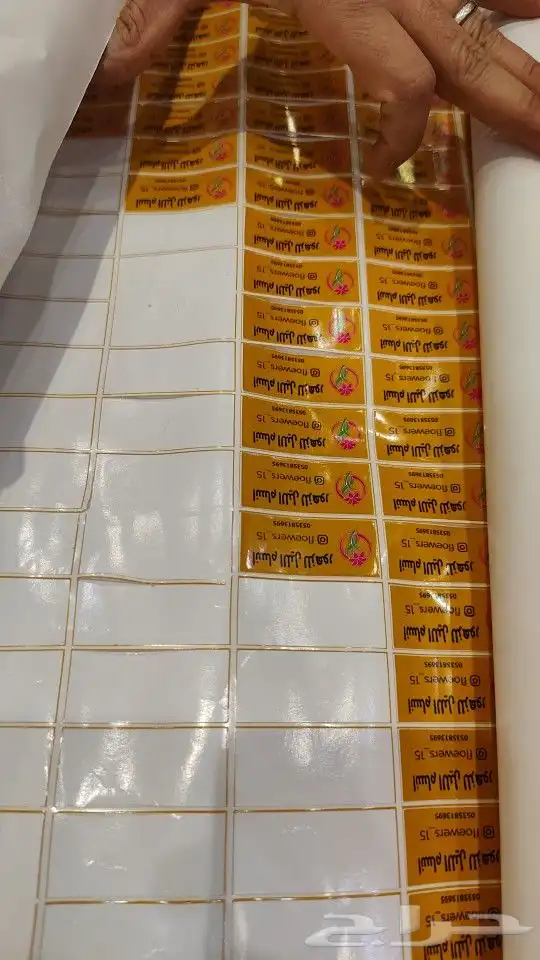 انسام الليل للزهور
floewers_15
0535813695
حراج